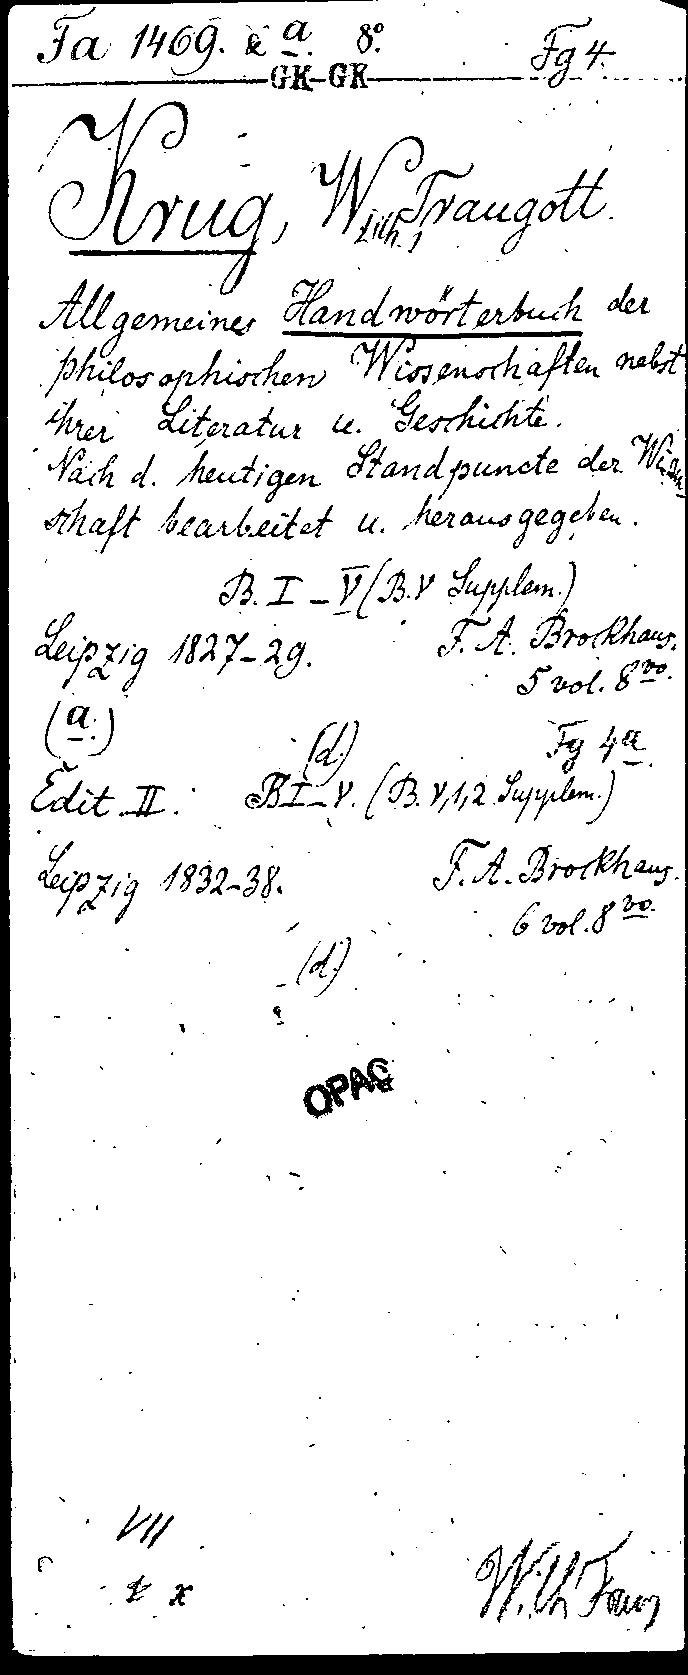 Fa 1469. & a. 8°. Fg 4.
GK-GK
Krug, Wilh. Traugott.
Allgemeines Handwörterbuch der
philosophischen Wissenschaften nebst
ihrer Literatur u. Geschichte.
Nach d. heutigen Standpuncte der Wissen
schaft bearbeitet u. herausgegeben.
B. I – V (B. V Supplem.)
Leipzig 1827–29. F. A. Brockhaus.
5 vol. 8vo.
(a.)
(d.) Fg 4a.
Edit. II. B I – V. (B. V,1,2 Supplem.)
Leipzig 1832–38. F. A. Brockhaus.
6 vol. 8vo.
(d.)
OPAC
VII
x